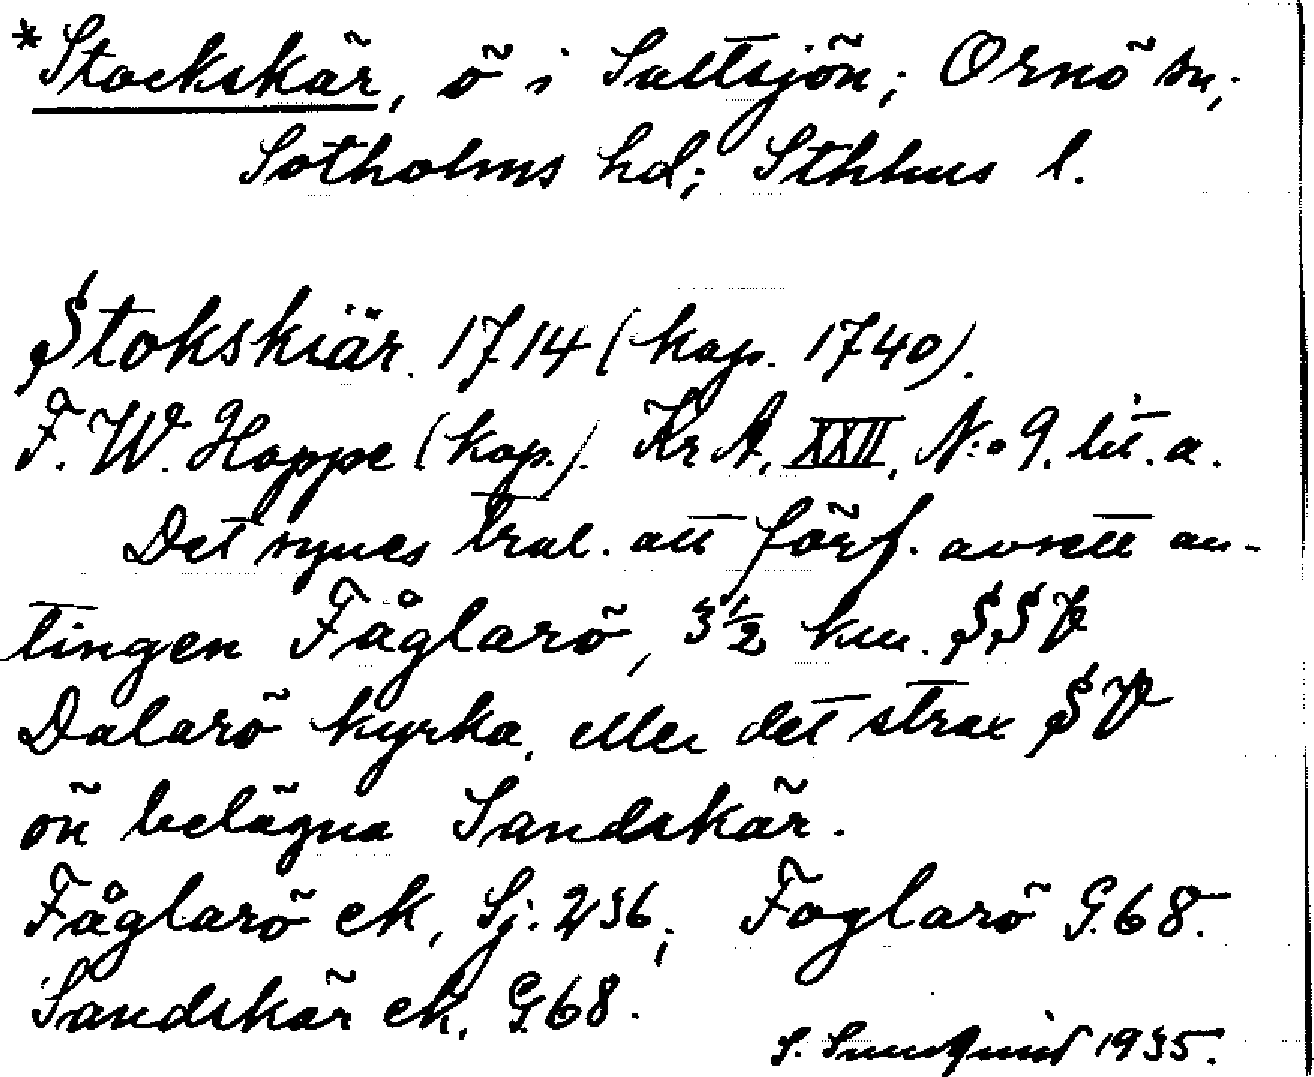 *Stockskär, ö i Saltsjön; Ornö sn;
Sotholms hd; Sthlms l.
Stokskiär. 1714 (kop. 1740).
F. W. Hoppe (kop.). Kr A. XXII, N:o 9. lit. a.
Det synes trol. att förf. avsett an-
tingen Fåglarö, 3 1/2 km. SSV
Dalarö kyrka, eller det strax SV
ön belägna Sandskär.
Fåglarö ek, Sj. 236; Foglarö G. 68.
Sandskär ek, G. 68.
S. 1935.